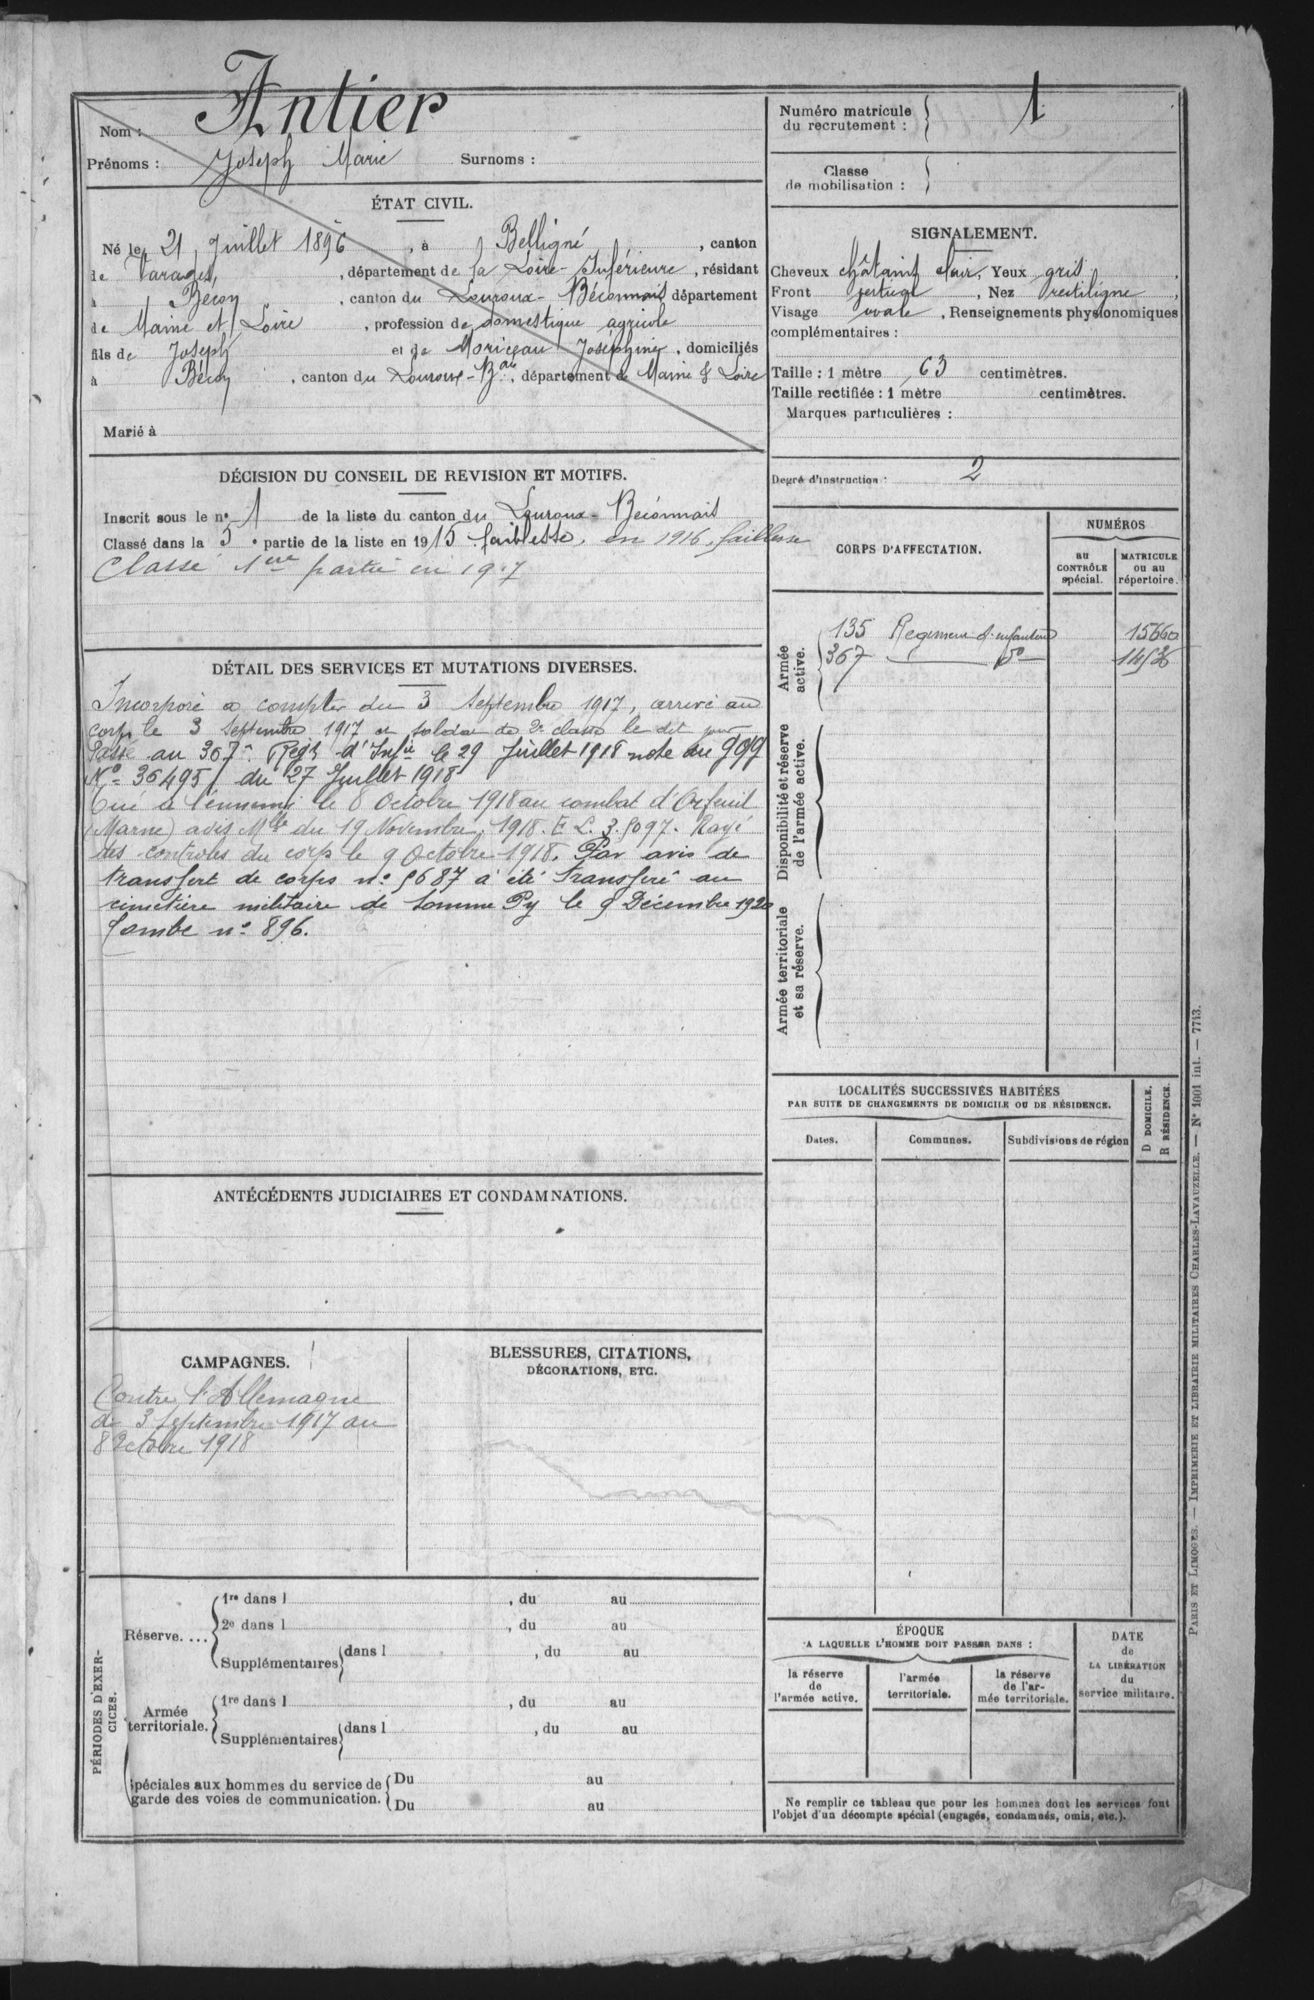 Nom : Antier
Prénoms : Joseph Marie Surnoms :
ÉTAT CIVIL.
Né le 21 Juillet 1896, à Belligné, canton
de Varades, département de la Loire-Inférieure, résidant
à Bécon, canton du Louroux-Béconnais département
de Maine et Loire, profession de domestique agricole
fils de Joseph et de Moriceau Joséphine, domiciliés
à Bécon, canton du Louroux-Bais, département de Maine & Loire
Marié à
DÉCISION DU CONSEIL DE REVISION ET MOTIFS.
Inscrit sous le n° 1 de la liste du canton du Louroux-Béconnais
Classé dans la 5e partie de la liste en 1915 faiblesse. en 1916, faiblesse
Classé 1ere partie en 1917
DÉTAIL DES SERVICES ET MUTATIONS DIVERSES.
Incorporé à compter du 3 Septembre 1917, arrivé au
corps le 3 Septembre 1917 et soldat de 2e classe le dit jour
Passé au 367e Regt d'Infie le 29 Juillet 1918 note du GQG
No 36495 du 27 Juillet 1918
Tué à l'ennemi le 8 Octobre 1918 au combat d'Orfeuil
(Marne) avis Mlle du 19 Novembre 1918. E L. 3.5097. Rayé
des contrôles du corps le 9 Octobre 1918. Par avis de
transfert de corps n° 5687 a été transféré au
cimetière militaire de Somme Py le 9 Décembre 1920
Tombe n° 896.
ANTÉCÉDENTS JUDICIAIRES ET CONDAMNATIONS.
CAMPAGNES.
Contre l'Allemagne
du 3 Septembre 1917 au
8 Octobre 1918
BLESSURES, CITATIONS,
DÉCORATIONS, ETC.
PÉRIODES D'EXER-
CICES.
Réserve....
1re dans l , du au
2e dans l , du au
Supplémentaires dans l , du au
Armée
territoriale.
1re dans l , du au
Supplémentaires dans l , du au
Spéciales aux hommes du service de
garde des voies de communication.
Du au
Du au
Numéro matricule
du recrutement : 1
Classe
de mobilisation :
SIGNALEMENT.
Cheveux châtaint clair, Yeux gris,
Front , Nez rectiligne,
Visage ovale, Renseignements physionomiques
complémentaires :
Taille : 1 mètre 63 centimètres.
Taille rectifiée : 1 mètre centimètres.
Marques particulières :
Degré d'instruction : 2
CORPS D'AFFECTATION.
NUMÉROS
au
CONTRÔLE
spécial.
MATRICULE
ou au
répertoire.
Armée
active.
135 Regiment d'infanterie 15660
367 — do —
Disponibilité et réserve
de l'armée active.
Armée territoriale
et sa réserve.
LOCALITÉS SUCCESSIVES HABITÉES
PAR SUITE DE CHANGEMENTS DE DOMICILE OU DE RÉSIDENCE.
D DOMICILE.
R RÉSIDENCE.
Dates. Communes. Subdivisions de région
ÉPOQUE
A LAQUELLE L'HOMME DOIT PASSER DANS :
la réserve
de
l'armée active.
l'armée
territoriale.
la réserve
de l'ar-
mée territoriale.
DATE
de
LA LIBÉRATION
du
service militaire.
Ne remplir ce tableau que pour les hommes dont les services font
l'objet d'un décompte spécial (engagés, condamnés, omis, etc.).
PARIS ET LIMOGES. — IMPRIMERIE ET LIBRAIRIE MILITAIRES CHARLES-LAVAUZELLE. — N° 1001 int. — 7713.